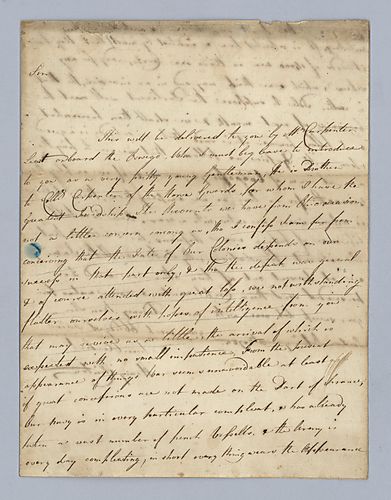 Sir
This will be delivered to you by Mr Carpenter
Lieut onboard the whom I must beg leave to introduce
to you as a very pretty young Gentleman, He is Brother
to Coll Carpenter of the Horse Guards for whom I have the
greatest friendship. The Accounts we have from the
not a little concern among us, tho I confess I am far from
conceiving that the fate of our Colonies depends on our
success in that part only, & tho the defeat was general
& of course attended with great loss, we notwithstanding
flatter ourselves with hopes of intelligence from you
that may revive us a little, the arrival of which is
expected with no small impatience. From the present
appearance of things War seems unavoidable at least
if great concessions are not made on the Part of France,
Our Navy is in every particular compleat, & has already
taken a vast number of french Vessells, & the Army is
every day compleating, in short every thing wears the Appearance